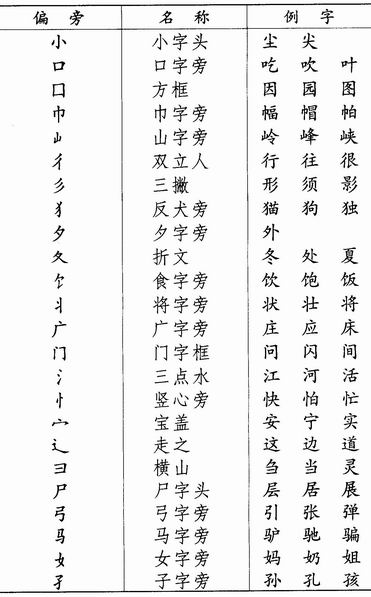 偏旁 名称 例字
小 小字头 尘 尖
口 口字旁 吃 吹 叶
囗 方框 因 园 图
巾 巾字旁 幅 帽 帕
山 山字旁 岭 峰 峡
彳 双立人 行 往 很
彡 三撇 形 须 影
犭 反犬旁 猫 狗 独
夕 夕字旁 外
夂 折文 冬 处 夏
饣 食字旁 饮 饱 饭
丬 将字旁 状 壮 将
广 广字旁 庄 应 床
门 门字框 问 闪 间
氵 三点水 江 河 活
忄 竖心旁 快 怕 忙
宀 宝盖 安 宁 实
辶 走之 这 边 道
彐 横山 刍 当 灵
尸 尸字头 层 居 展
弓 弓字旁 引 张 弹
马 马字旁 驴 驰 骗
女 女字旁 妈 奶 姐
子 子字旁 孙 孔 孩